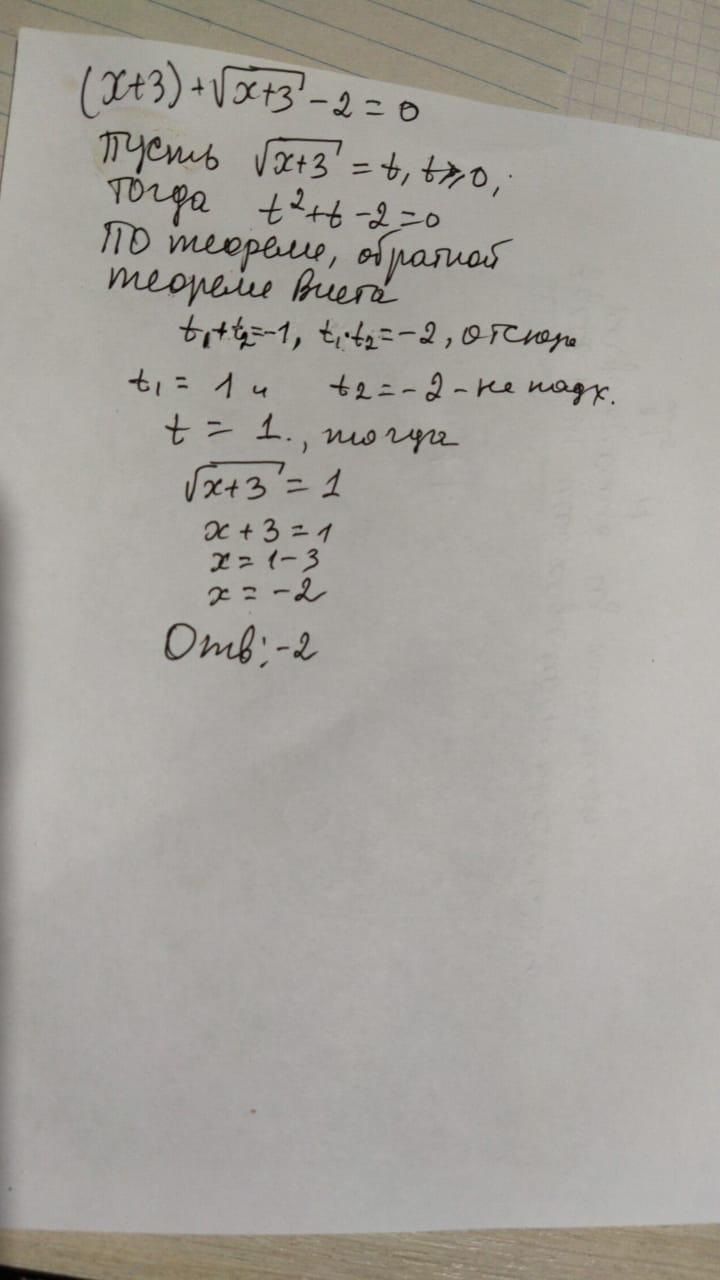 (x+3)+√x+3 -2=0
Пусть √x+3 = t, t⩾0,
тогда t²+t-2=0
По теореме, обратной
теореме Виета
t₁+t₂=-1, t₁·t₂=-2, отсюда
t₁ = 1 и t₂=-2-не подх.
t = 1., тогда
√x+3 = 1
x+3=1
x=1-3
x=-2
Отв:-2